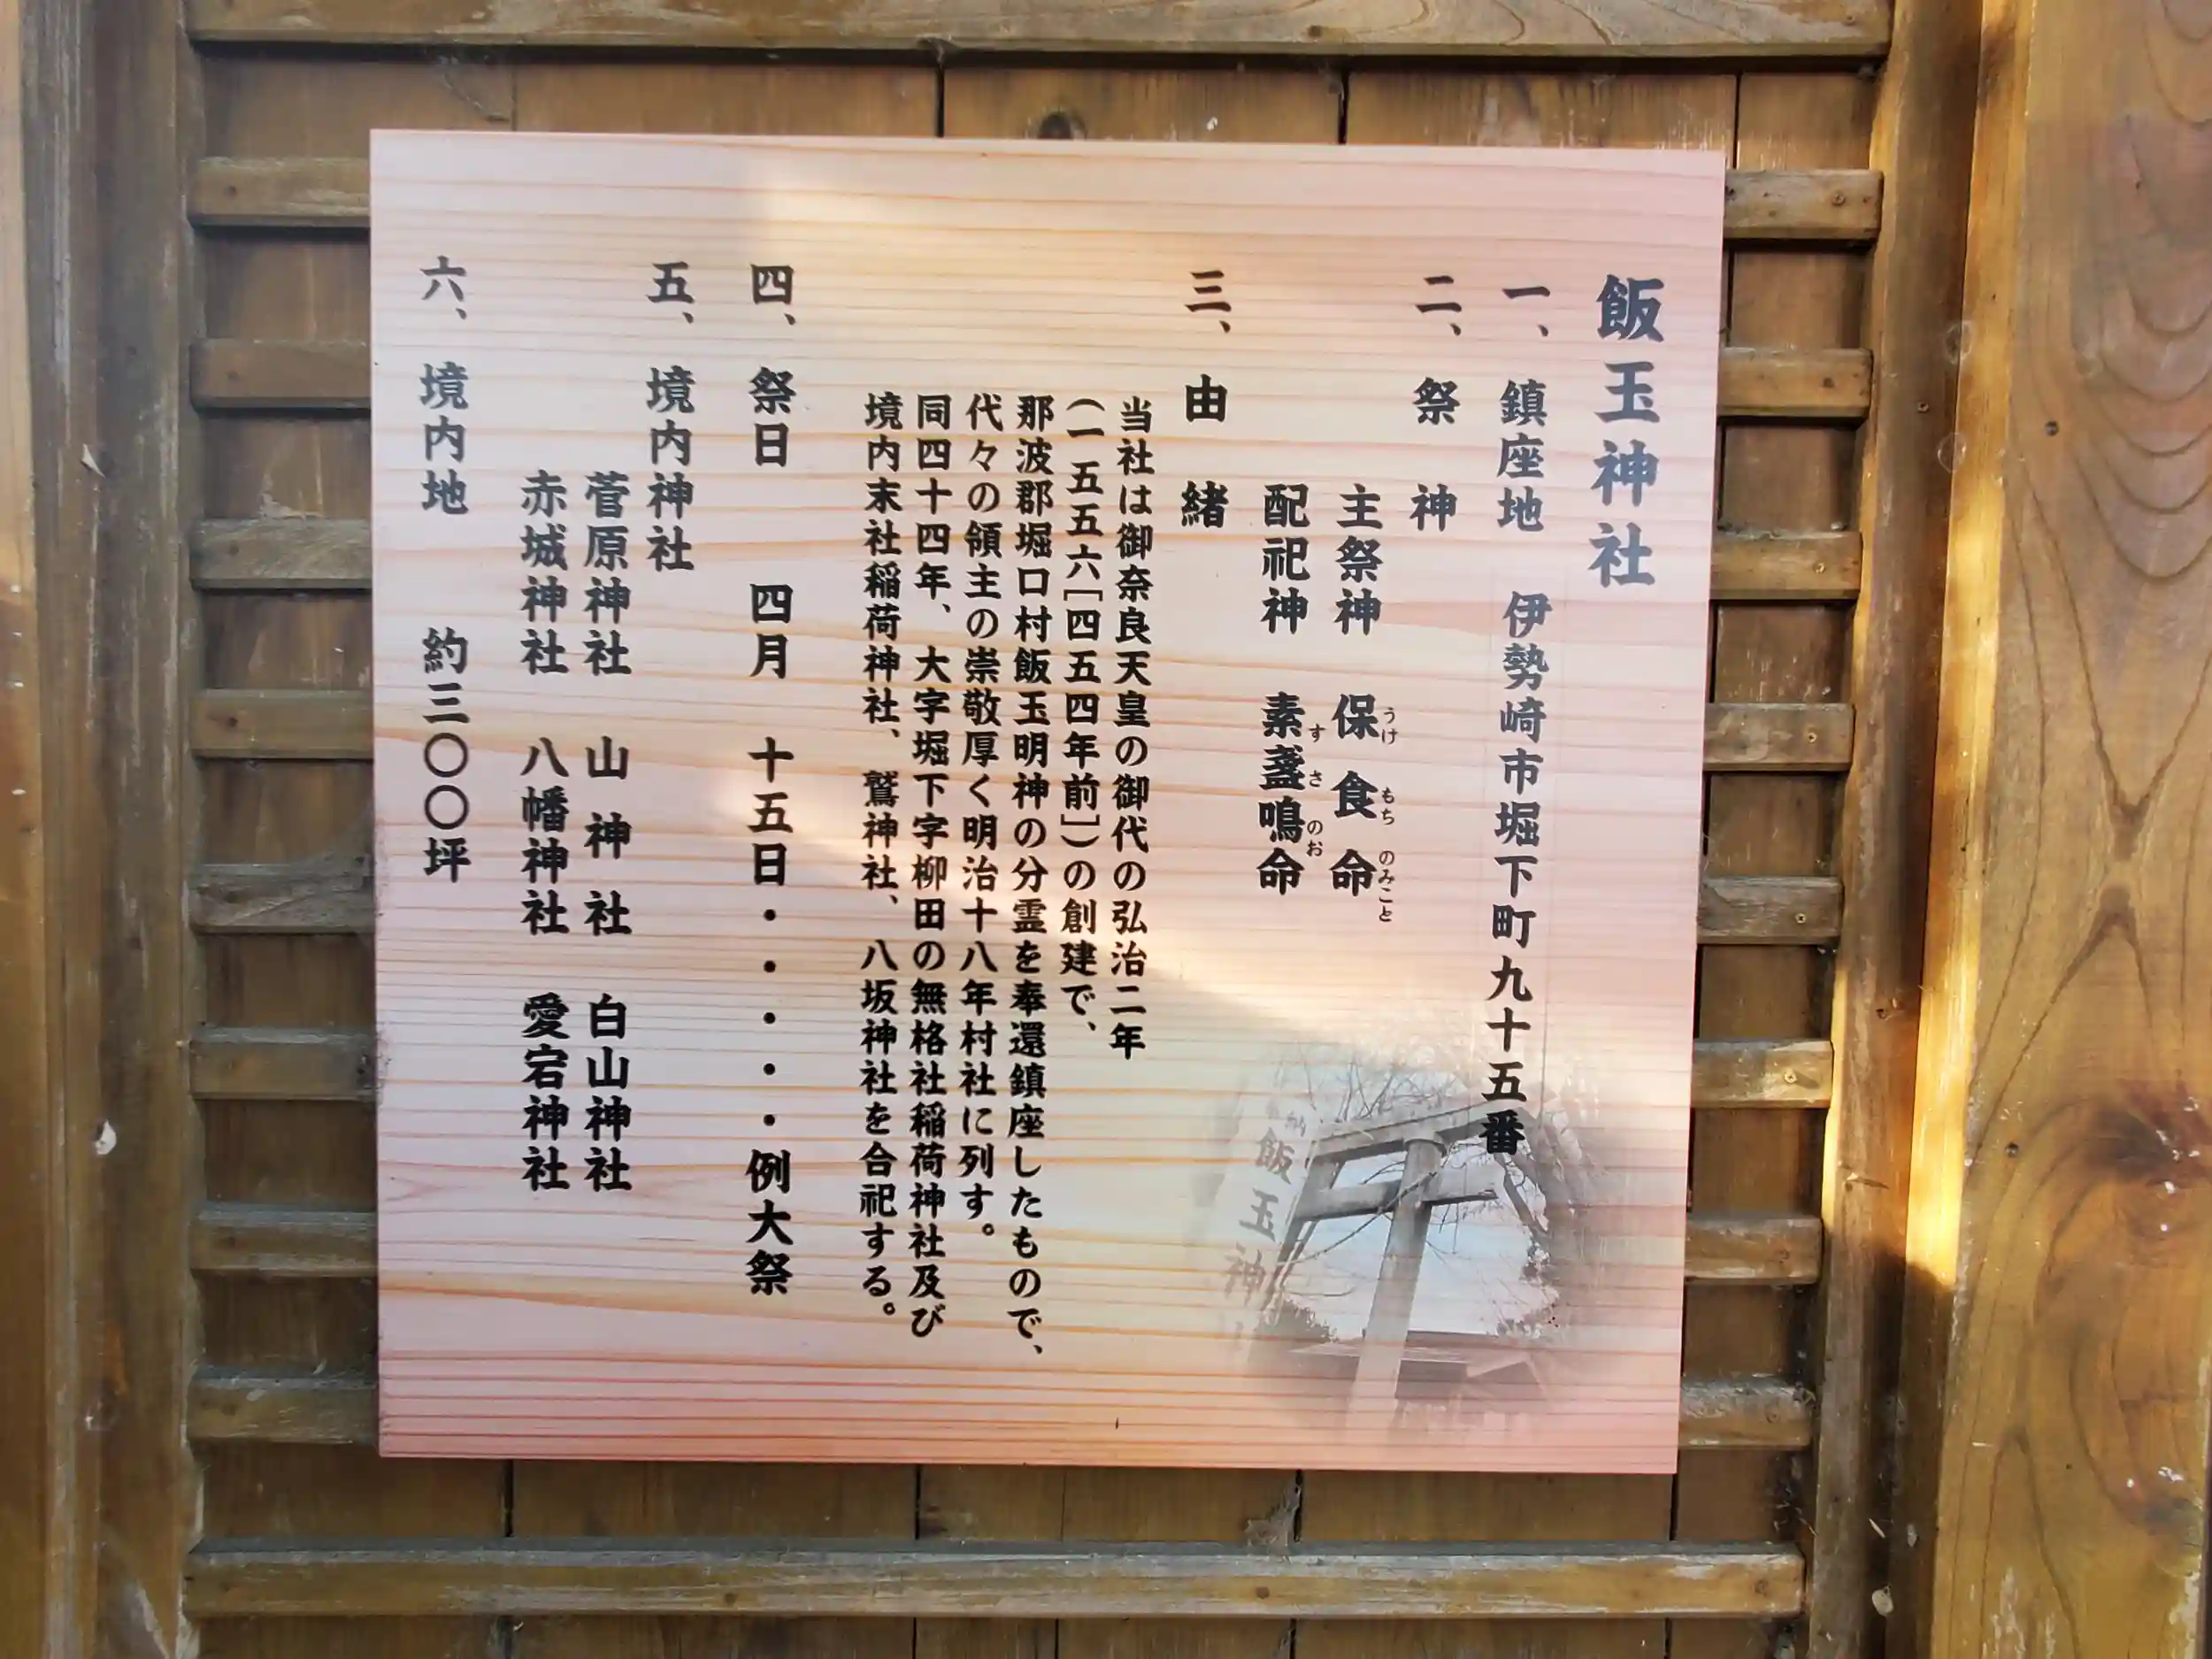 飯玉神社
一、鎮座地　伊勢崎市堀下町九十五番
二、祭神
主祭神　保食命
うけ　もち　のみこと
配祀神　素盞鳴命
す　さ　のお
三、由緒
当社は御奈良天皇の御代の弘治二年
(一五五六[四五四年前])の創建で、
那波郡堀口村飯玉明神の分霊を奉還鎮座したもので、
代々の領主の崇敬厚く明治十八年村社に列す。
同四十四年、大字堀下字柳田の無格社稲荷神社及び
境内末社稲荷神社、鷲神社、八坂神社を合祀する。
四、祭日　四月　十五日・・・・・例大祭
五、境内神社
菅原神社　山神社　白山神社
赤城神社　八幡神社　愛宕神社
六、境内地　約三〇〇坪
飯玉神